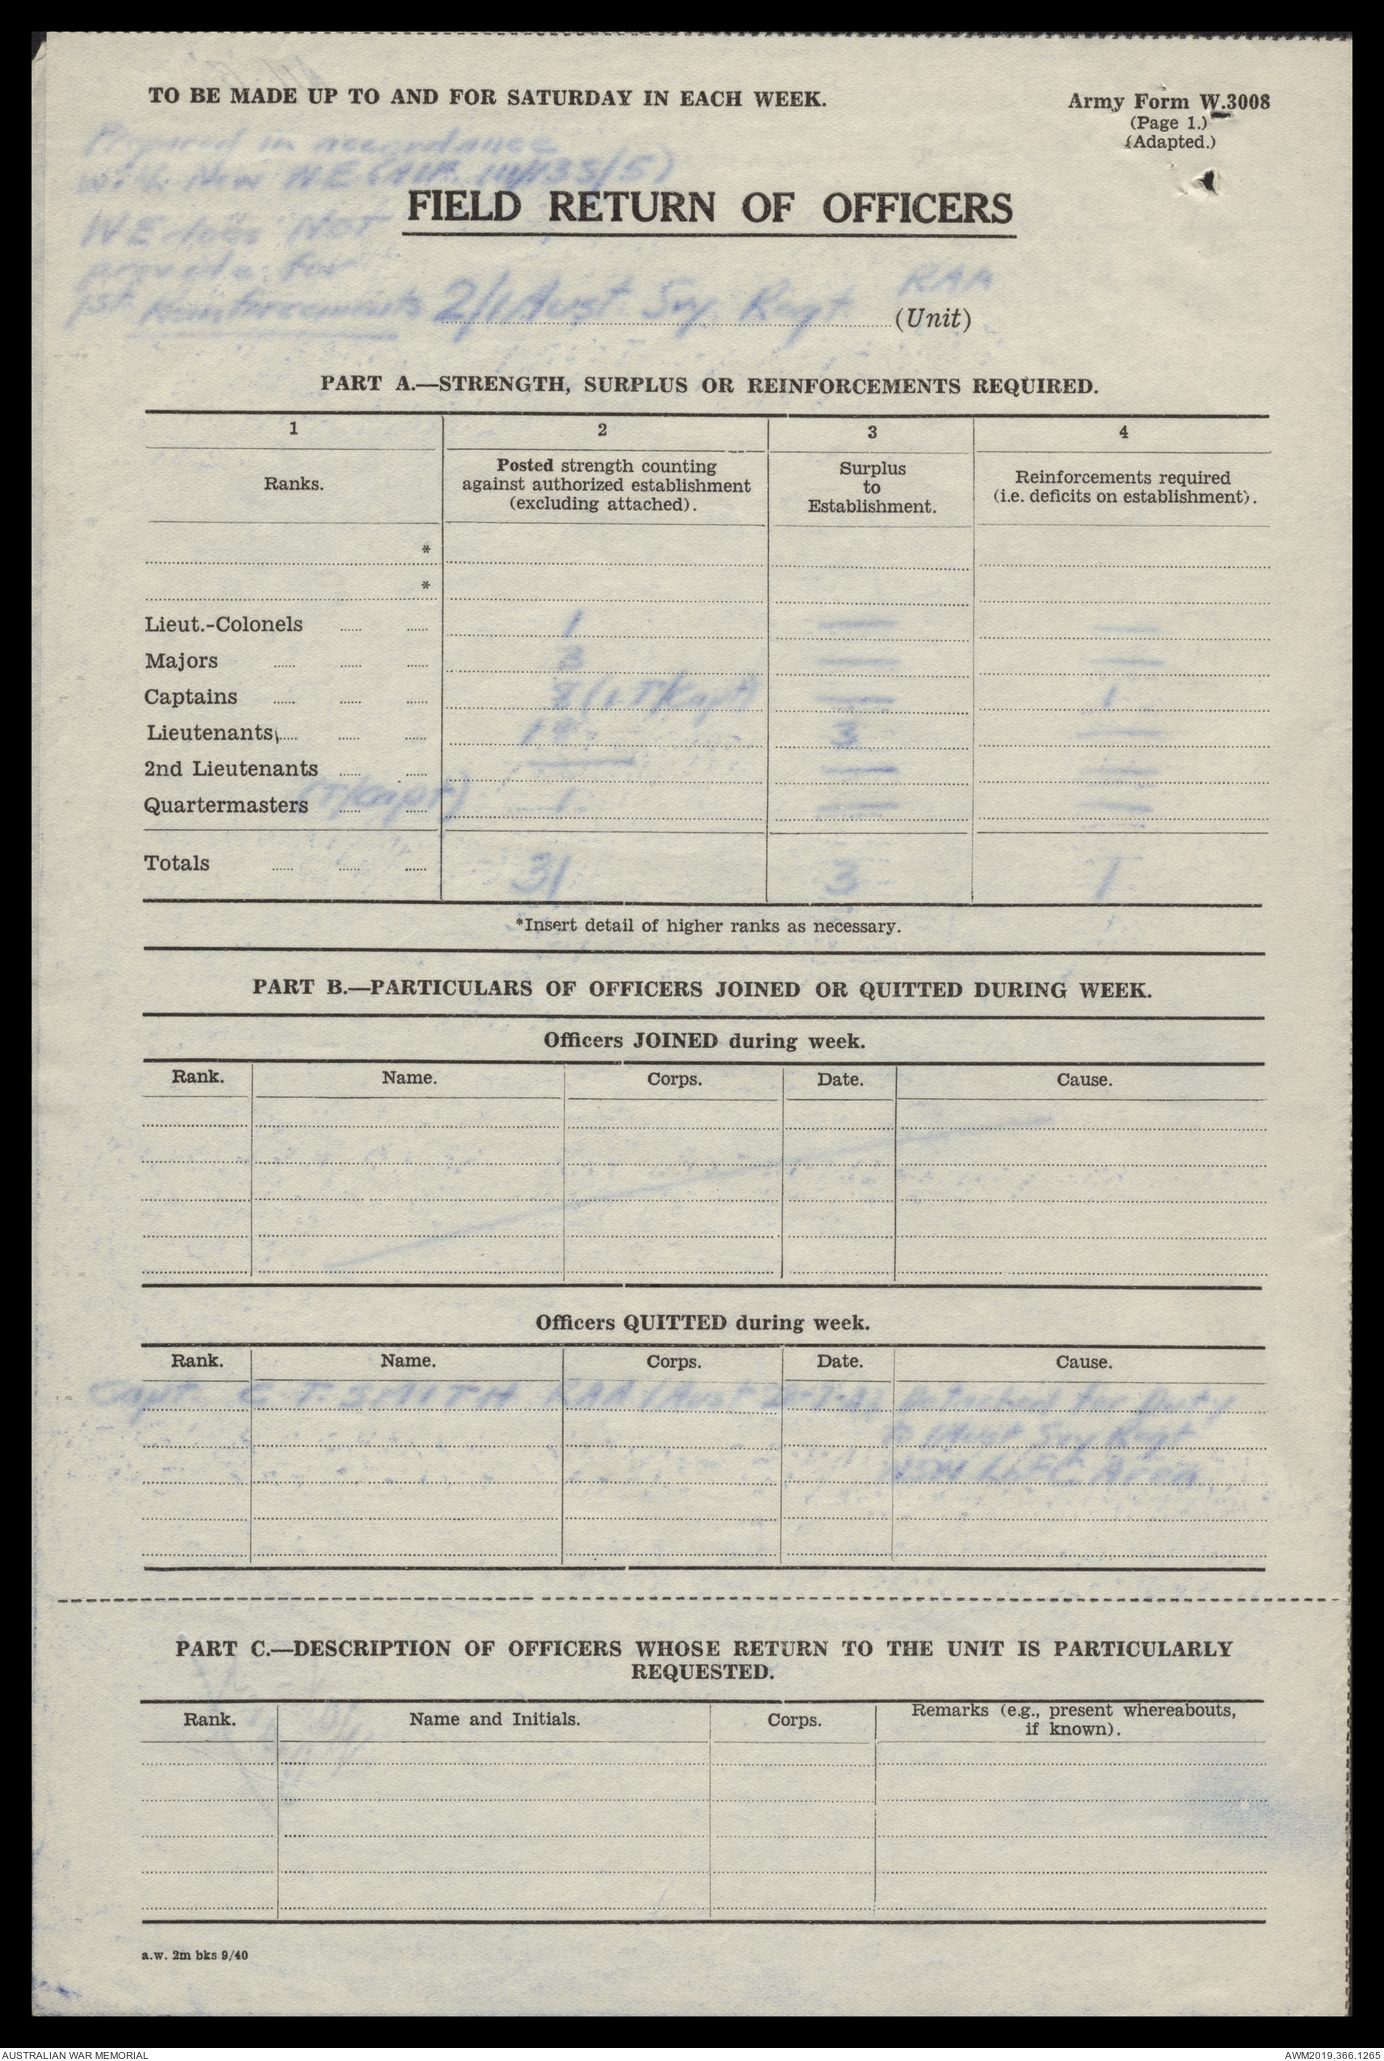 TO BE MADE UP TO AND FOR SATURDAY IN EACH WEEK.
Army Form W.3008
(Page 1.)
(Adapted.)
Prepared in accordance
with New W.E.
FIELD RETURN OF OFFICERS
WE does NOT
provide for
1st Reinforcements
2/1 Aust. Svy. Regt RAA
(Unit)
PART A.—STRENGTH, SURPLUS OR REINFORCEMENTS REQUIRED.
1 2 3 4
Ranks. Posted strength counting against authorized establishment (excluding attached). Surplus to Establishment. Reinforcements required (i.e. deficits on establishment).
*
*
Lieut.-Colonels ..... ..... 1 — —
Majors ..... ..... ..... 3 — —
Captains ..... ..... ..... (1 T/Capt) — 1
Lieutenants ..... ..... ..... 3 —
2nd Lieutenants ..... ..... — — —
Quartermasters (T/Capt) ..... ..... 1 — —
Totals ..... ..... ..... 31 3 1
*Insert detail of higher ranks as necessary.
PART B.—PARTICULARS OF OFFICERS JOINED OR QUITTED DURING WEEK.
Officers JOINED during week.
Rank. Name. Corps. Date. Cause.
Officers QUITTED during week.
Rank. Name. Corps. Date. Cause.
Capt. C T. SMITH RAA (Aust Detached for Duty
to 1 Aust Svy Regt
NSW L of C Area
PART C.—DESCRIPTION OF OFFICERS WHOSE RETURN TO THE UNIT IS PARTICULARLY
REQUESTED.
Rank. Name and Initials. Corps. Remarks (e.g., present whereabouts, if known).
a.w. 2m bks 9/40
AUSTRALIAN WAR MEMORIAL
AWM2019.366.1265